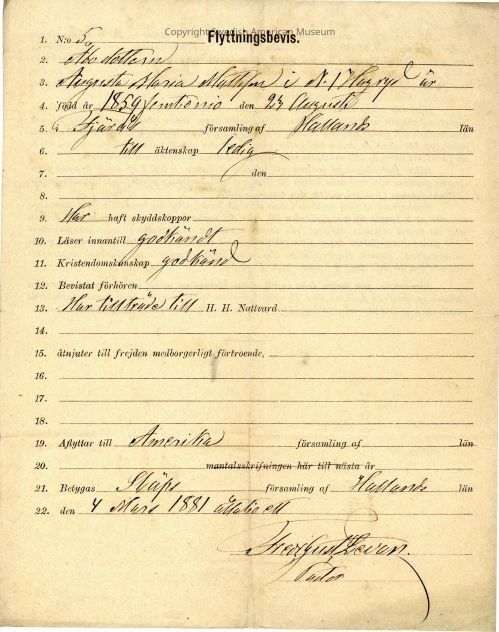 Copyright Swedish American Museum
Flyttningsbevis.
1. N:o 5
2. Åbodottern
3. Augusta Maria i N. 1 är
4. född år 1859 femtionio den 23 Augusti
5. i Fjärås församling af Hallands län
6. till äktenskap ledig
7. den
8.
9. Har haft skyddskoppor
10. Läser innantill godkändt
11. Kristendomskunskap godkänd
12. Bevistat förhören
13. Har tillträde till H. H. Nattvard
14.
15. åtnjuter till frejden medborgerligt förtroende,
16.
17.
18.
19. Aflyttar till Amerika församling af län
20. mantalsskrifningen här till nästa år
21. Betygas Släps församling af Hallands län
22. den 4 Mars 1881 åttatioett
Pastor